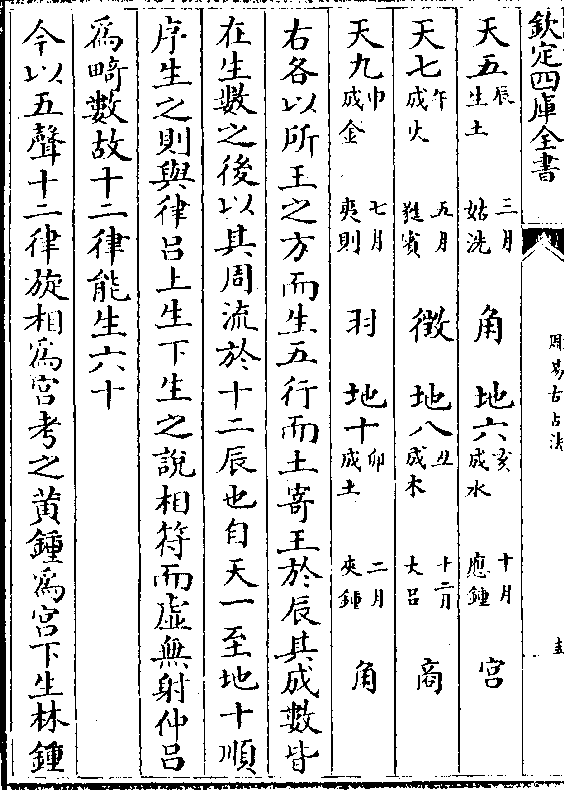 欽定四庫全書
周易古占法
天五辰生土 三月姑洗 角 地六亥成水 十月應鍾 宮
天七午成火 五月蕤賓 徵 地八丑成木 十二月大呂 商
天九申成金 七月夷則 羽 地十卯成土 二月夾鍾 角
右各以所王之方而生五行而土寄王於辰其成數皆
在生數之後以其周流於十二辰也自天一至地十順
序生之則與律呂上生下生之說相符而虛無射仲呂
爲畸數故十二律能生六十
今以五聲十二律旋相爲宮考之黄鍾爲宮下生林鍾